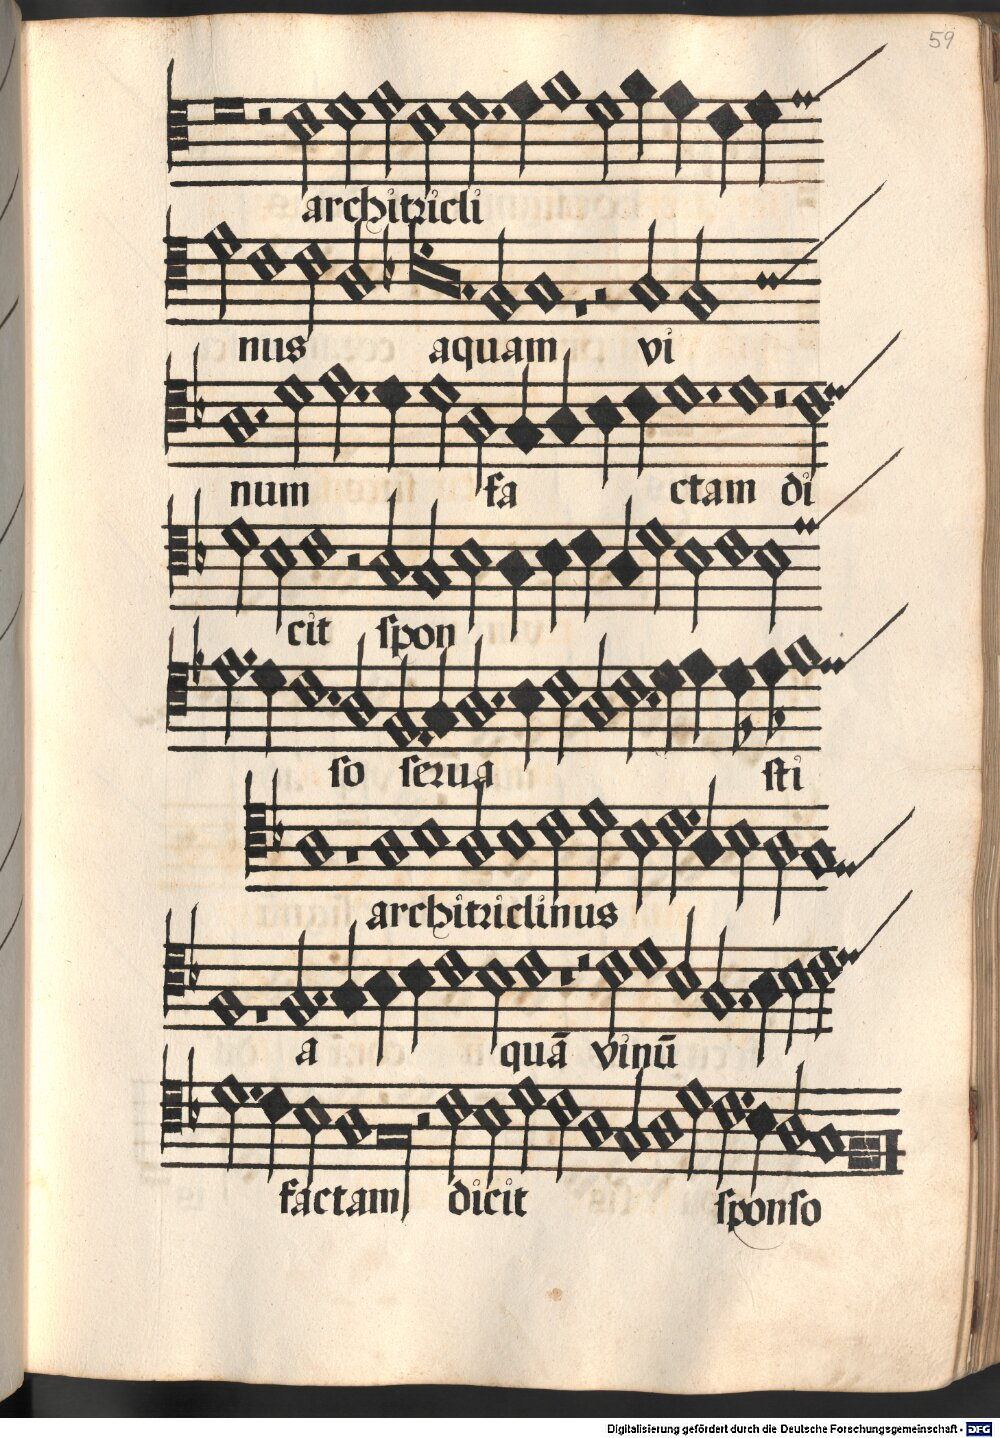 59
architricli
nus aquam vi
num fa ctam di
cit spon
so serua sti
architriclinus
a quā vinū
factam dicit sponso
Digitalisierung gefördert durch die Deutsche Forschungsgemeinschaft - DFG